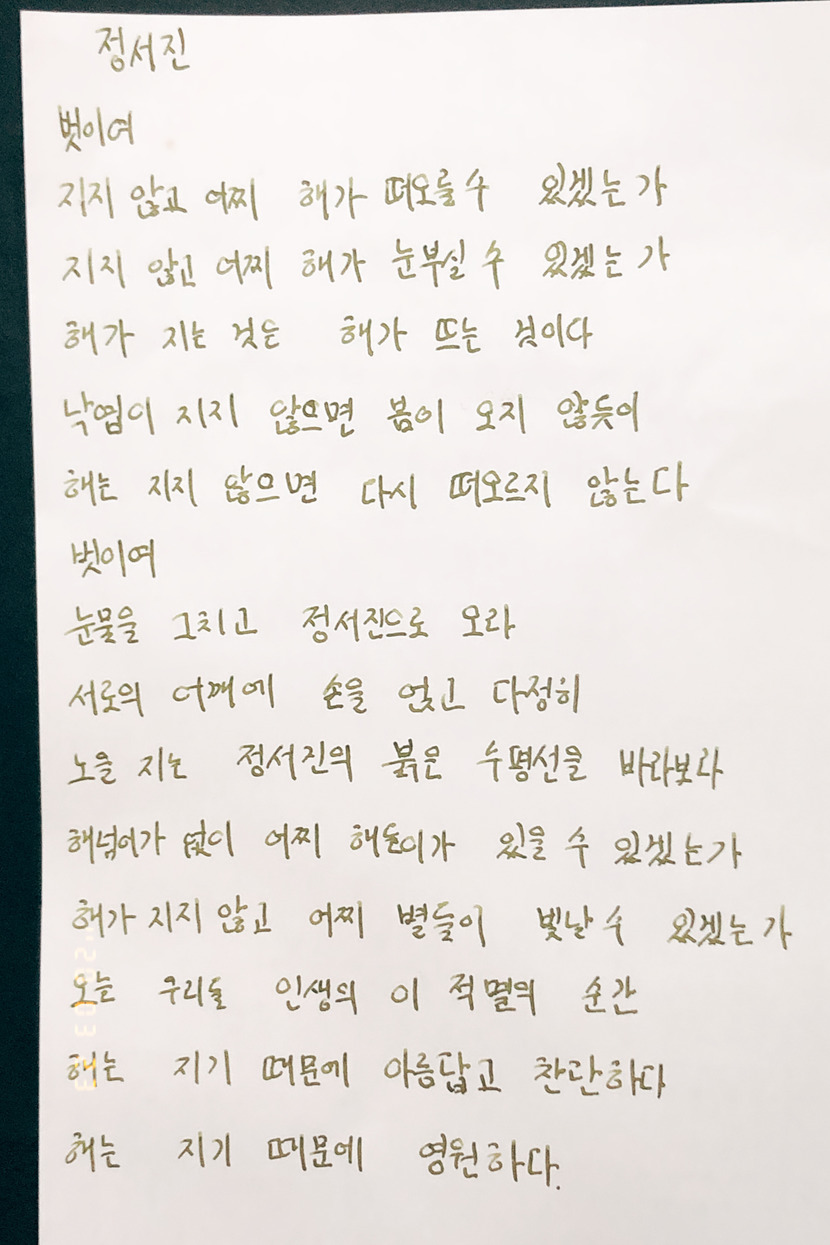 정서진
벗이여
지지 않고 어찌 해가 떠오를 수 있겠는가
지지 않고 어찌 해가 눈부실 수 있겠는가
해가 지는 것은 해가 뜨는 것이다
낙엽이 지지 않으면 봄이 오지 않듯이
해는 지지 않으면 다시 떠오르지 않는다
벗이여
눈물을 그치고 정서진으로 오라
서로의 어깨에 손을 얹고 다정히
노을 지는 정서진의 붉은 수평선을 바라보라
해넘이가 없이 어찌 해돋이가 있을 수 있겠는가
해가 지지 않고 어찌 별들이 빛날 수 있겠는가
오늘 우리들 인생의 이 적멸의 순간
해는 지기 때문에 아름답고 찬란하다
해는 지기 때문에 영원하다.